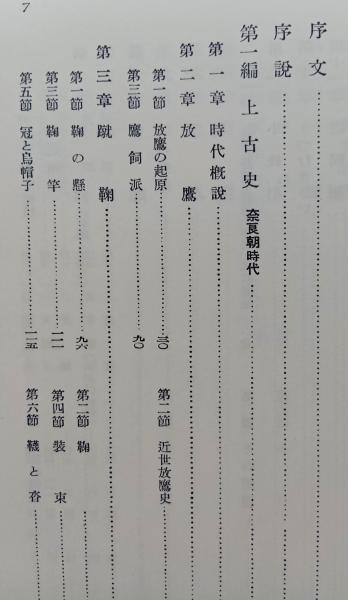 7
序文
序説
第一編 上古史 奈良朝時代
第一章 時代概説
第二章 放鷹
第一節 放鷹の起原 三〇 第二節 近世放鷹史
第三節 鷹飼派 九〇
第三章 蹴鞠
第一節 鞠の懸 九六 第二節 鞠
第三節 鞠竿 一一一 第四節 装束
第五節 冠と烏帽子 一一五 第六節 韈と沓